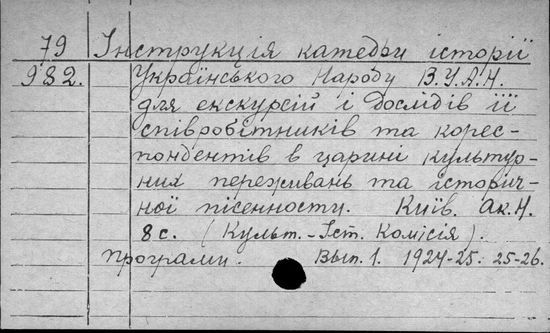 79 Інструкція катедри історії
982. Українського Народу В.У.А.Н.
для екскурсій і дослідів її
співробітників та корес-
пондентів в царині культур-
них переживань та історич-
ної пісенности. Київ. Ак.Н.
8 с. (Культ.-Іст. Комісія).
програми. Вып. 1. 1924-25. 25-26.